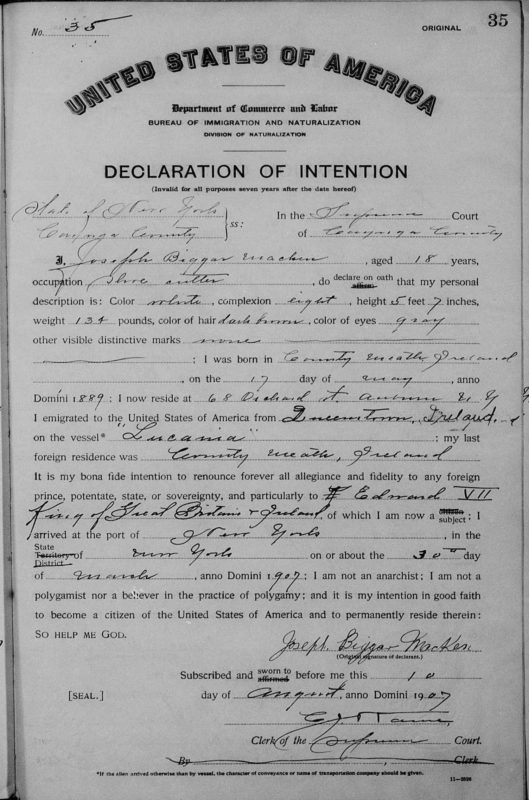 No. 35 ORIGINAL 35
UNITED STATES OF AMERICA
Department of Commerce and Labor
BUREAU OF IMMIGRATION AND NATURALIZATION
DIVISION OF NATURALIZATION
DECLARATION OF INTENTION
(Invalid for all purposes seven years after the date hereof)
State of New York
Cayuga County
ss:
In the Supreme Court
of Cayuga County
I, Joseph Biggar Macken, aged 18 years,
occupation Shoe cutter, do declare on oath affirm that my personal
description is: Color white, complexion light, height 5 feet 7 inches,
weight 134 pounds, color of hair dark brown, color of eyes gray
other visible distinctive marks none
; I was born in County Meath, Ireland
, on the 17 day of May, anno
Domini 1889; I now reside at 68 Orchard St Auburn N.Y.
I emigrated to the United States of America from Queenstown, Ireland
on the vessel* "Lucania"; my last
foreign residence was County Meath, Ireland
It is my bona fide intention to renounce forever all allegiance and fidelity to any foreign
prince, potentate, state, or sovereignty, and particularly to Edward VII
King of Great Britain & Ireland, of which I am now a citizen subject; I
arrived at the port of New York, in the
State Territory District of New York on or about the 30th day
of March, anno Domini 1907; I am not an anarchist; I am not a
polygamist nor a believer in the practice of polygamy; and it is my intention in good faith
to become a citizen of the United States of America and to permanently reside therein:
SO HELP ME GOD.
Joseph Biggar Macken
(Original signature of declarant.)
Subscribed and sworn to affirmed before me this 10
[SEAL.] day of August, anno Domini 1907
Clerk of the Supreme Court.
By , Clerk
*If the alien arrived otherwise than by vessel, the character of conveyance or name of transportation company should be given. 11—2026